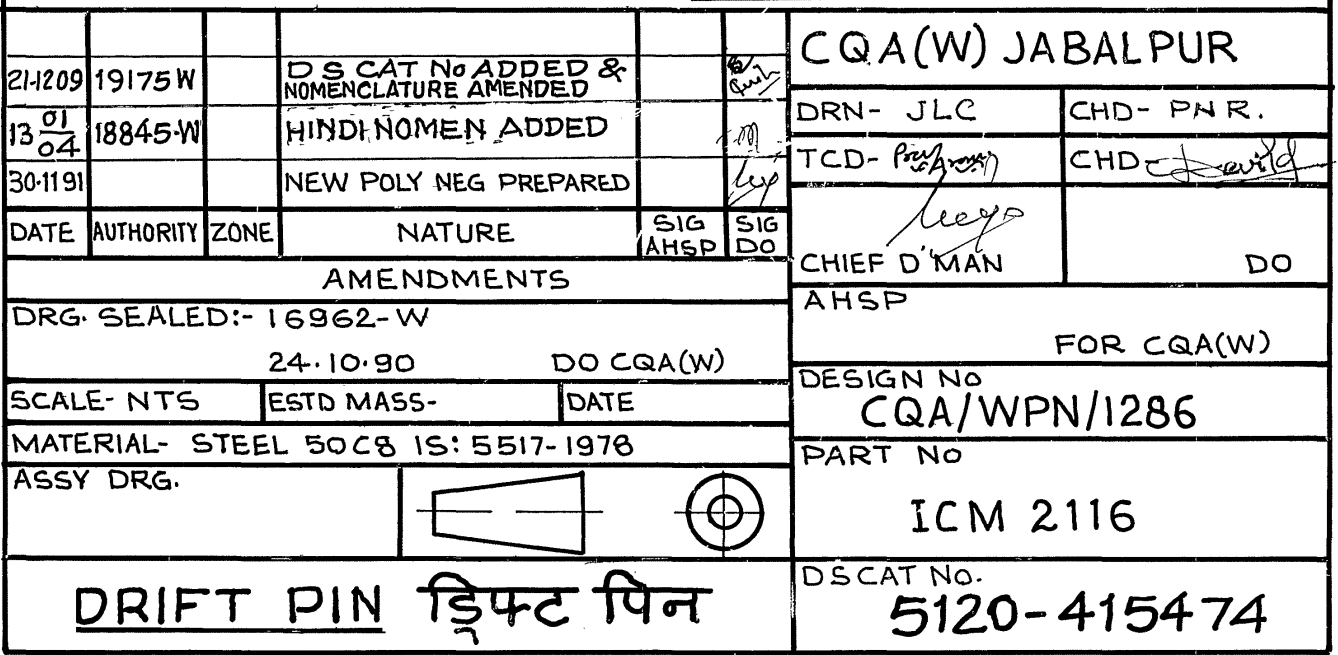 21-1209 19175 W D S CAT No ADDED &
NOMENCLATURE AMENDED
13 01/04 18845-W HINDI NOMEN ADDED
30·11 91 NEW POLY NEG PREPARED
DATE AUTHORITY ZONE NATURE SIG AHSP SIG DO
AMENDMENTS
DRG. SEALED:- 16962-W
24.10.90 DO CQA(W)
SCALE- NTS ESTD MASS- DATE
MATERIAL- STEEL 50C8 IS: 5517-1978
ASSY DRG.
DRIFT PIN ड्रिफ्ट पिन
CQA(W) JABALPUR
DRN- JLC CHD- PNR.
TCD- CHD-
CHIEF D'MAN DO
AHSP
FOR CQA(W)
DESIGN NO
CQA/WPN/1286
PART NO
ICM 2116
DSCAT NO.
5120-415474